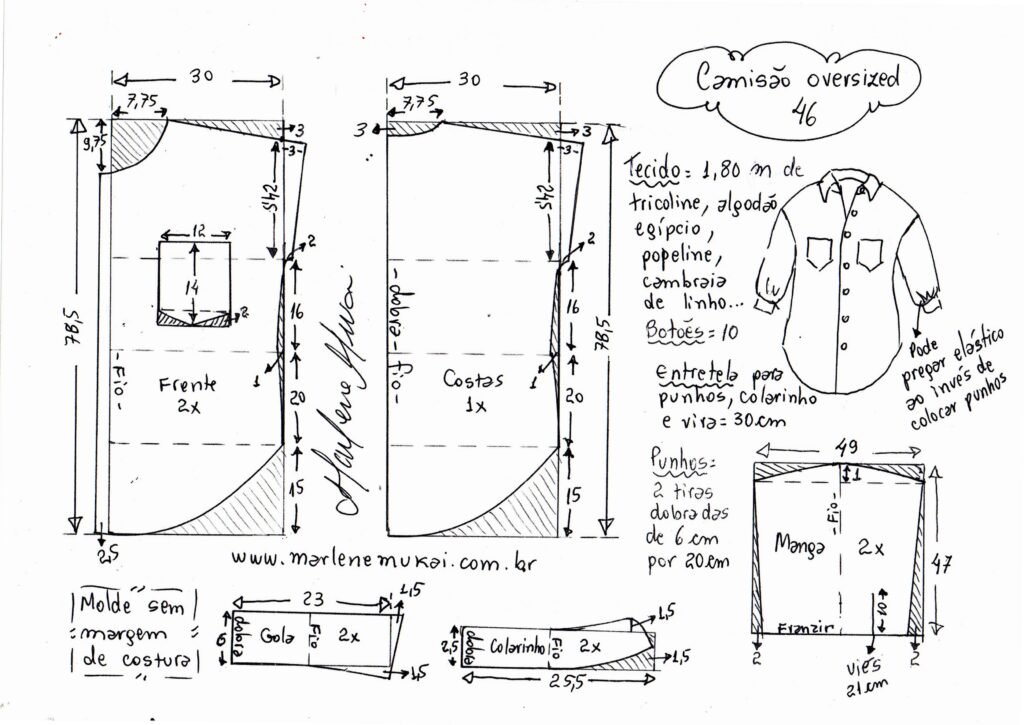 Camisão oversized
46
30
7,75
9,75
3
3
24,5
12
14
2
2
16
1
20
15
78,5
Fio
Frente
2x
2,5
30
7,75
3
3
3
24,5
2
16
1
20
15
78,5
dobra - fio
Costas
1x
Marlene Mukai
Tecido = 1,80 m de
tricoline, algodão
egípcio,
popeline,
cambraia
de linho...
Botões = 10
Entretela para
punhos, colarinho
e vira = 30cm
Pode
pregar elástico
ao invés de
colocar punhos
Punhos =
2 tiras
dobradas
de 6 cm
por 20 cm
49
1
Fio
Manga 2x
47
10
Franzir
2
2
viés
21cm
www.marlenemukai.com.br
Molde sem
margem
de costura
23
1,5
6
dobra
Gola
Fio
2x
1,5
1,5
2,5
dobra
Colarinho
Fio
2x
1,5
25,5